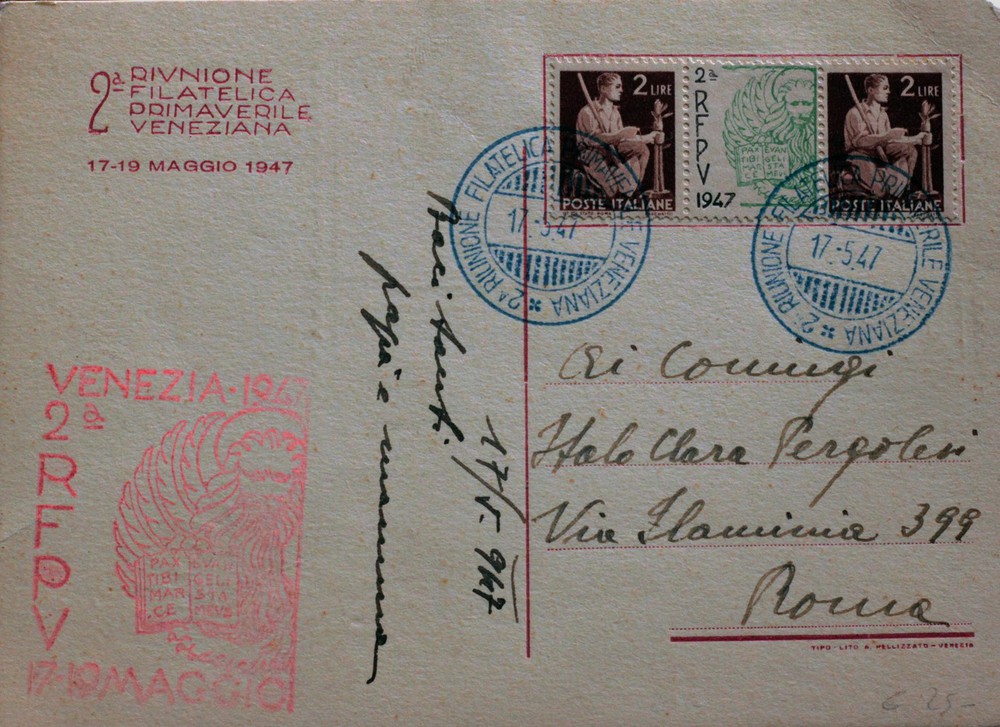 2ª RIVNIONE
FILATELICA
PRIMAVERILE
VENEZIANA
17-19 MAGGIO 1947
2 LIRE
POSTE ITALIANE
2ª
R
F
P
V
1947
PAX EVAN
TIBI GELI
MAR STA
CE MEVS
2 LIRE
POSTE ITALIANE
2ª RIUNIONE FILATELICA PRIMAVERILE VENEZIANA
17.-5.47
2ª RIUNIONE FILATELICA PRIMAVERILE VENEZIANA
17.-5.47
17/V-947
Baci tanti.
papà e mamma
Ai Coniugi
Italo Clara Pergolesi
Via Flaminia 399
Roma
TIPO-LITO A. PELLIZZATO - VENEZIA
VENEZIA-1947
2ª
R
F
P
V
PAX EVAN
TIBI GELI
MAR STA
CE MEVS
17-19 MAGGIO
€ 25-